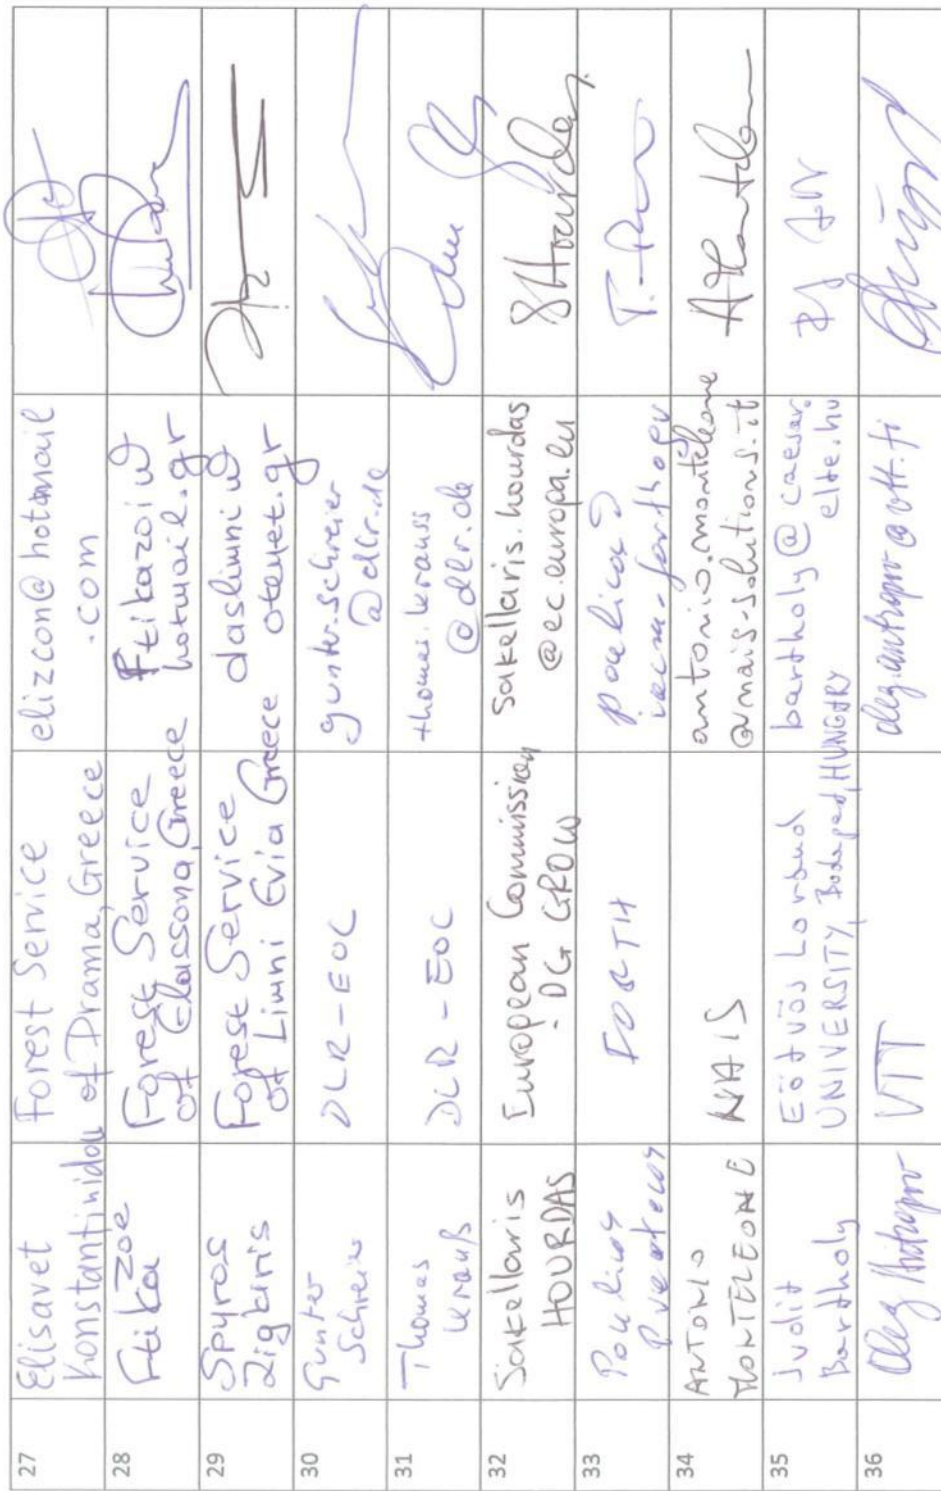 27
Elisavet
Konstantinidou
Forest Service
of Drama, Greece
elizcon@hotmail
.com
28
Ftika Zoe
Forest Service
of Elassona, Greece
Ftikazoi@
hotmail.gr
29
Spyros
Zigkiris
Forest Service
of Limni Evia Greece
daslimni@
otenet.gr
30
Gunter
Schreier
DLR-EOC
gunter.schreier
@dlr.de
31
Thomas
Krauß
DLR-EOC
thomas.krauss
@dlr.de
32
Sakellaris
HOURDAS
European Commission
- DG GROW
Sakellaris.hourdas
@ec.europa.eu
33
Poulicos
FORTH
34
ANTONIO
MONTELEONE
NAIS
antonio.monteleone
@nais-solutions.it
35
Judit
Bartholy
Eötvös Loránd
UNIVERSITY, Budapest, HUNGARY
bartholy@caesar.
elte.hu
36
Oleg Antropov
VTT
oleg.antropov@vtt.fi